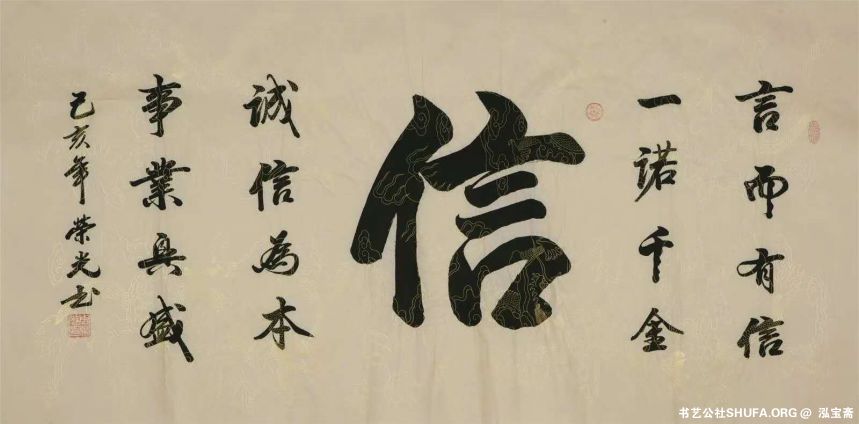 言而有信
一諾千金
信
誠信為本
事業興盛
己亥年 榮光书
书艺公社SHUFA.ORG @ 泓宝斋